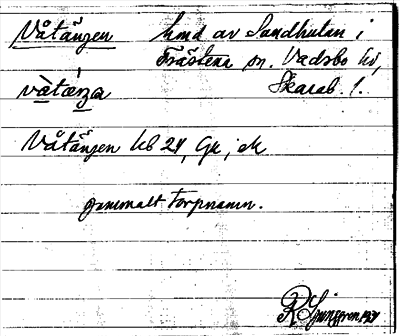 Våtängen hmd av Sandhulan i
Fråstena sn. Vadsbo hd,
vàtæŋa Skarab. l.
Våtängen kb 24, Gk; ek
gammalt torpnamn.
R Ljunggren 1931